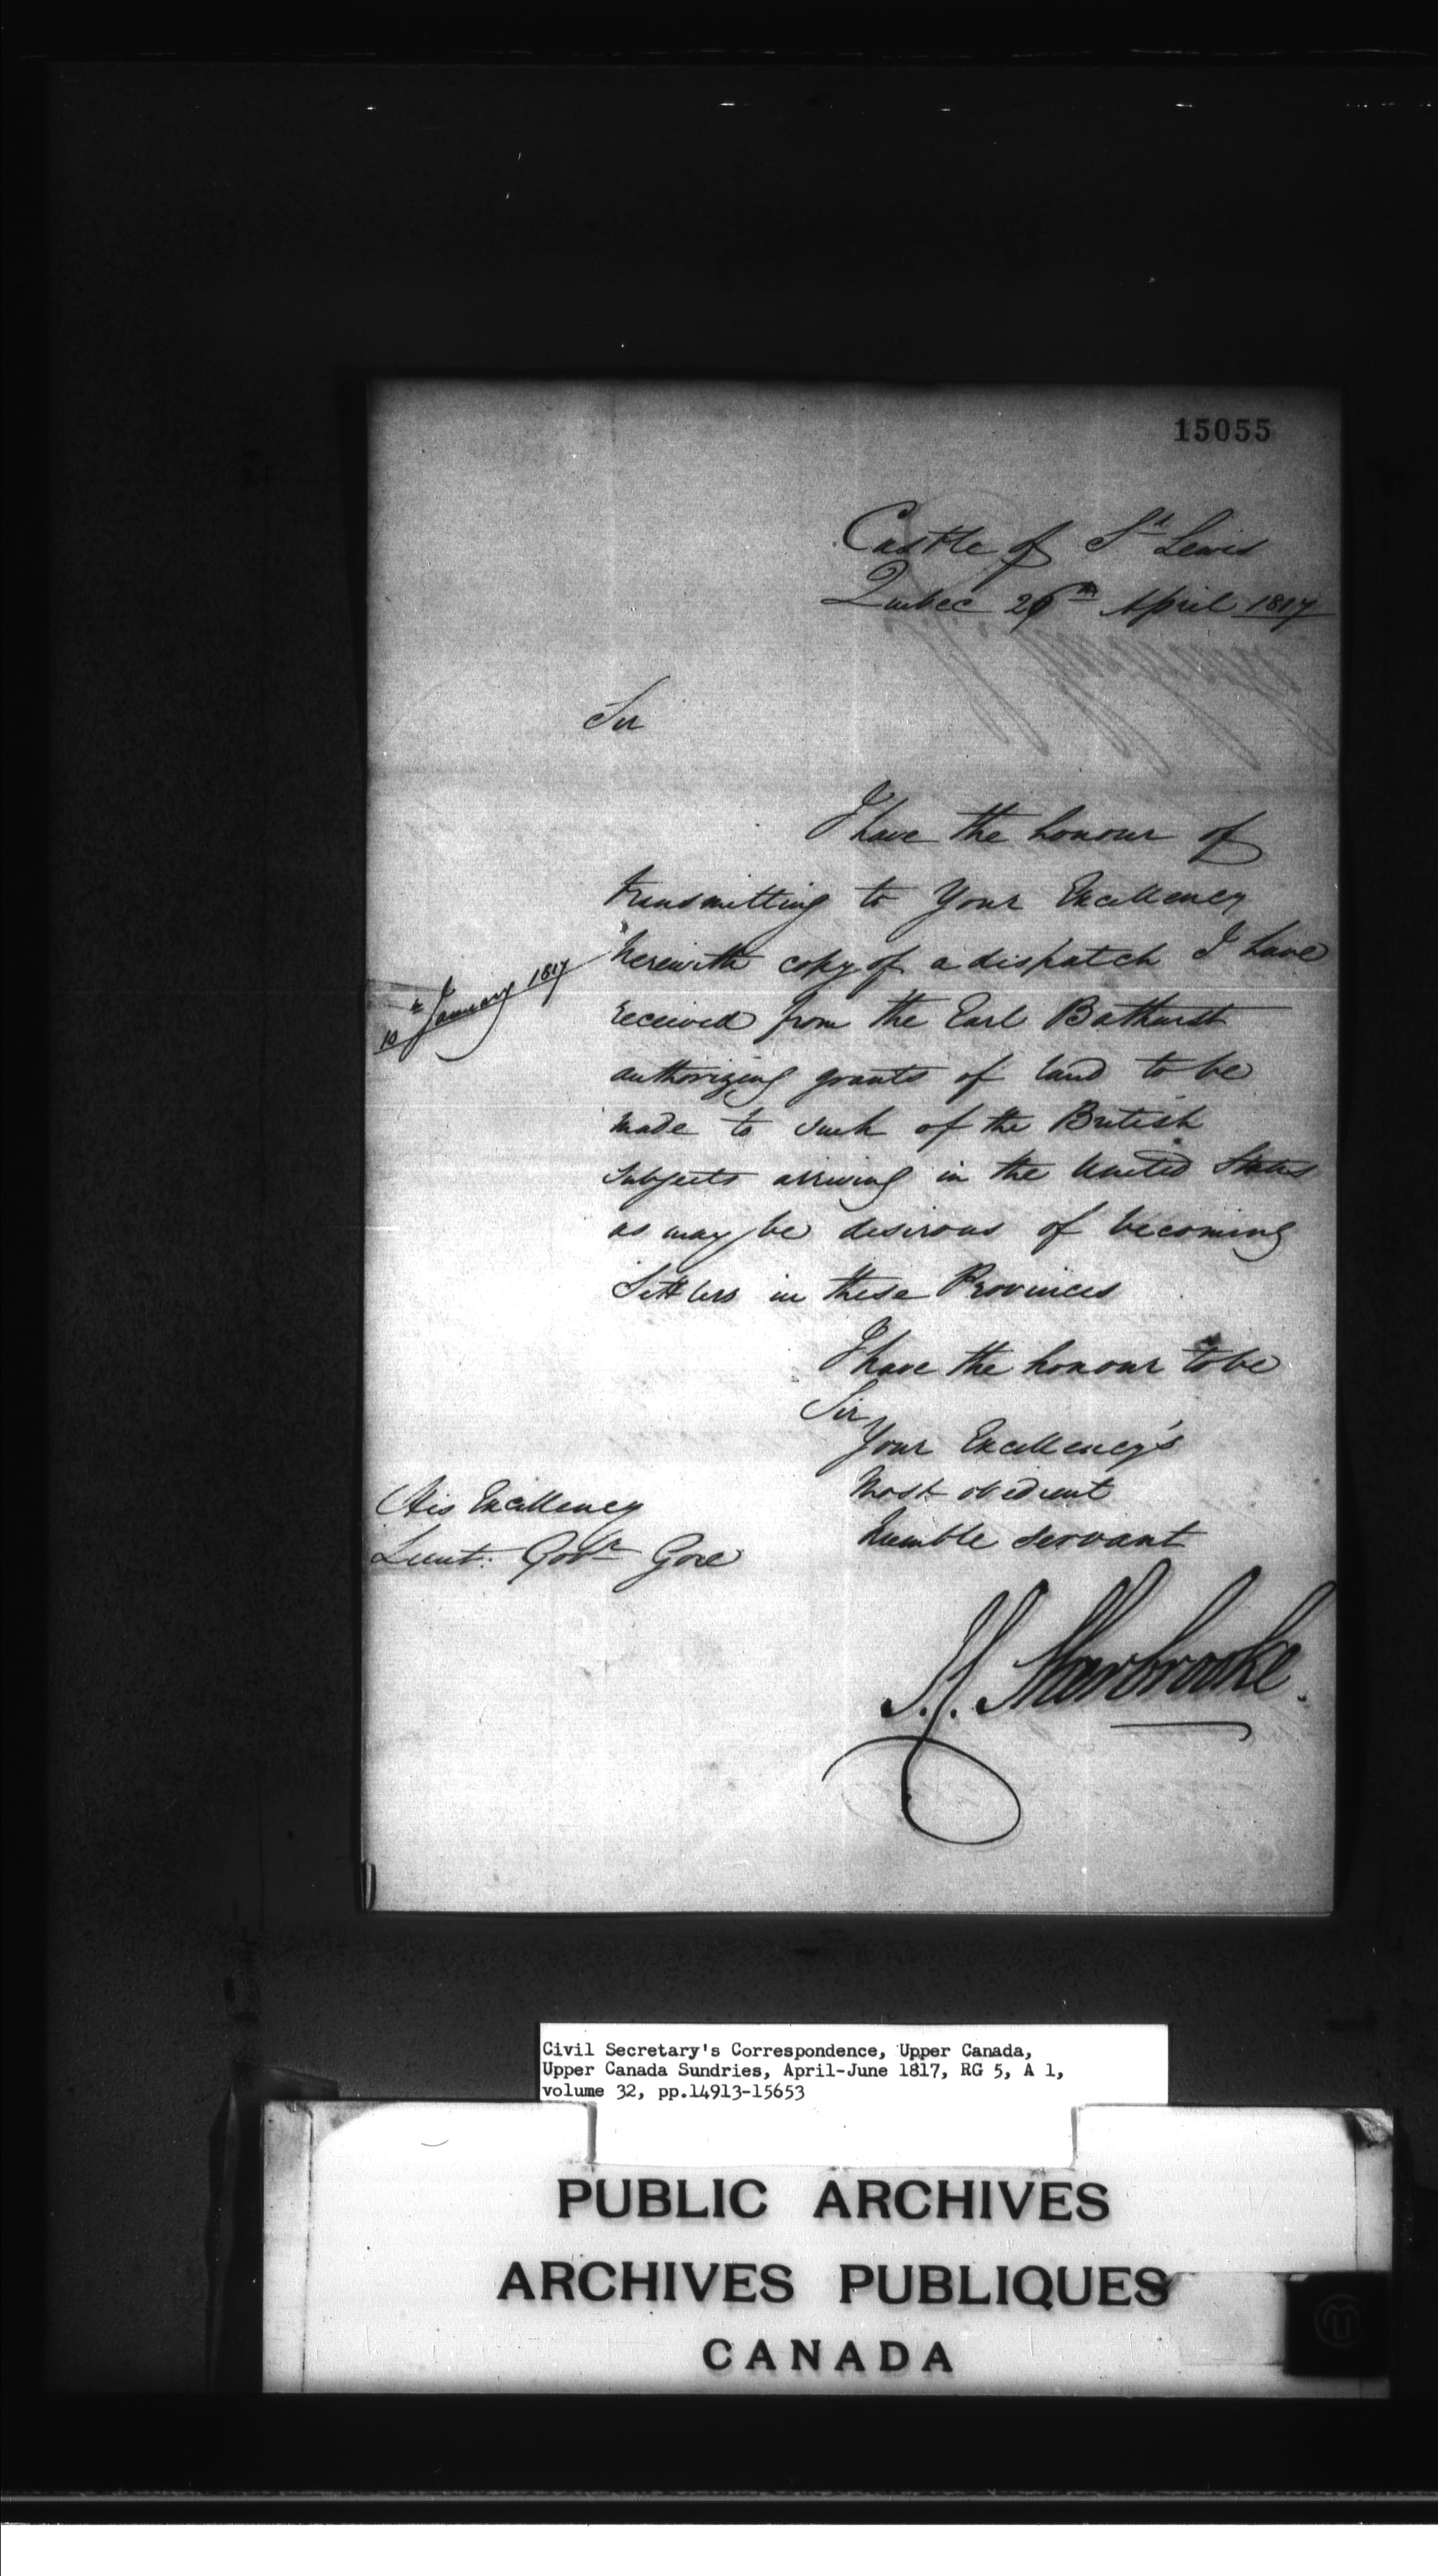 15055
Castle of St Lewis
Quebec 26th April 1817
Sir
I have the honour of
transmitting to Your Excellency
herewith copy of a dispatch I have
10th January 1817
received from the Earl Bathurst
authorizing grants of land to be
made to such of the British
subjects arriving in the United States
as may be desirous of becoming
Settlers in these Provinces
I have the honour to be
Sir
Your Excellency's
Most obedient
humble servant
His Excellency
Lieut: Govr Gore
J. C. Sherbrooke.
Civil Secretary's Correspondence, Upper Canada,
Upper Canada Sundries, April-June 1817, RG 5, A 1,
volume 32, pp.14913-15653
PUBLIC ARCHIVES
ARCHIVES PUBLIQUES
CANADA